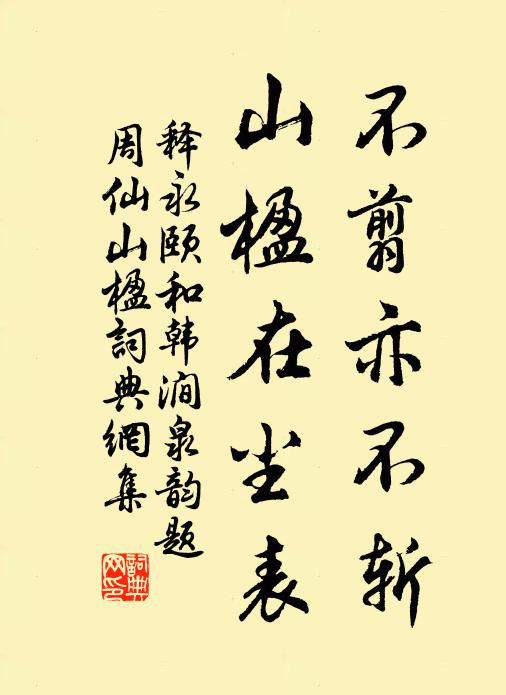 不翦亦不斩
山楹在尘表
释永颐和韩涧泉韵题
周仙山楹词典网集
詞典网印